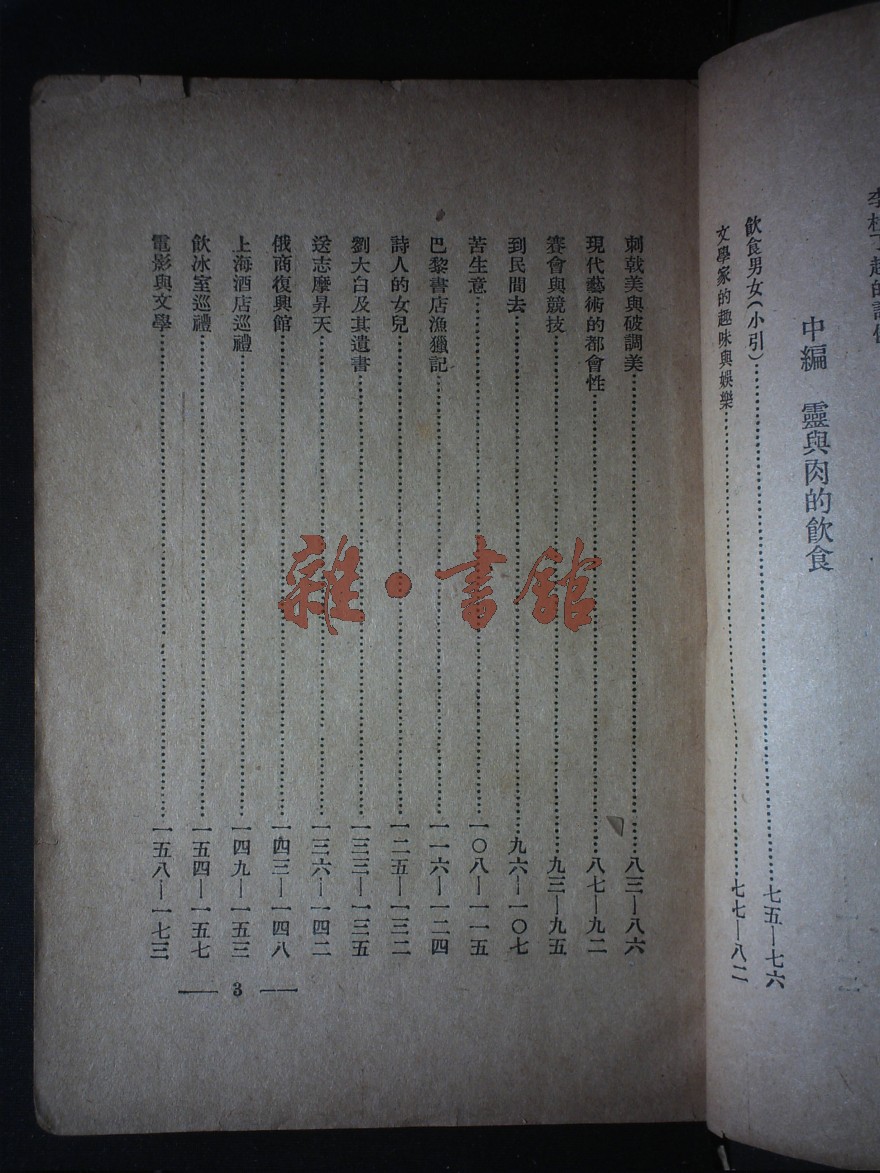 中編　靈與肉的飲食
飲食男女（小引）……七五—七六
文學家的趣味與娛樂……七七—八二
刺戟美與破調美……八三—八六
現代藝術的都會性……八七—九二
賽會與競技……九三—九五
到民間去……九六—一〇七
苦生意……一〇八—一一五
巴黎書店漁獵記……一一六—一二四
詩人的女兒……一二五—一三二
劉大白及其遺書……一三三—一三五
送志摩昇天……一三六—一四二
俄商復興館……一四三—一四八
上海酒店巡禮……一四九—一五三
飲冰室巡禮……一五四—一五七
電影與文學……一五八—一七三
— 3 —
雜·書館